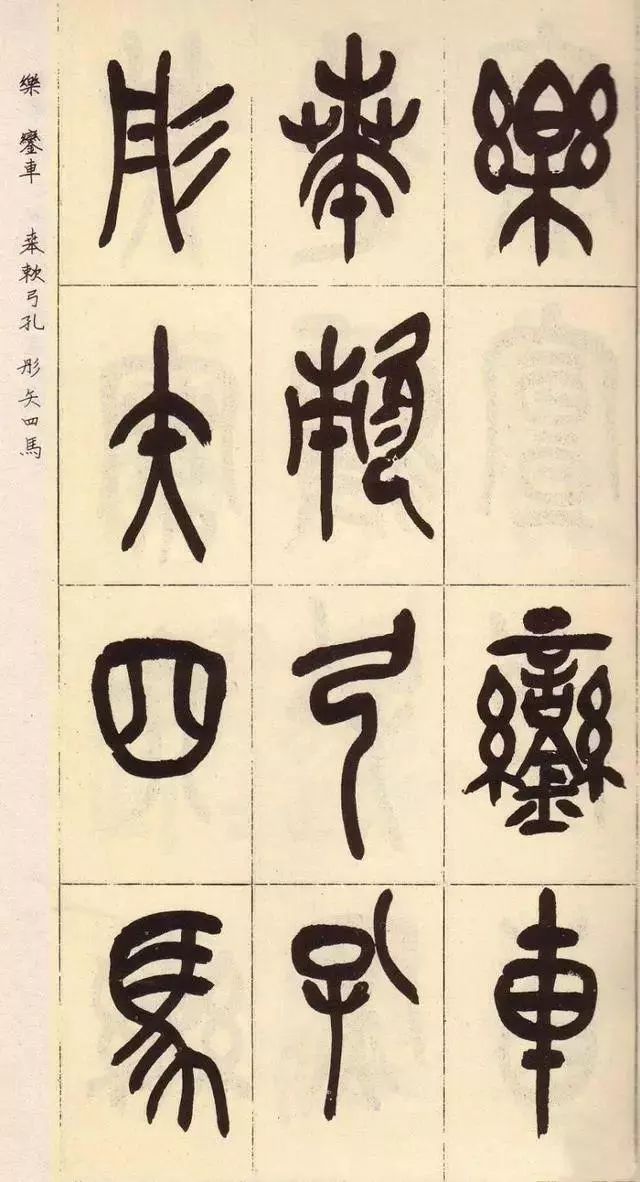 樂 鑾車
𠦪欶弓孔
彤矢四馬
樂 鑾車 𠦪欶弓孔 彤矢四馬